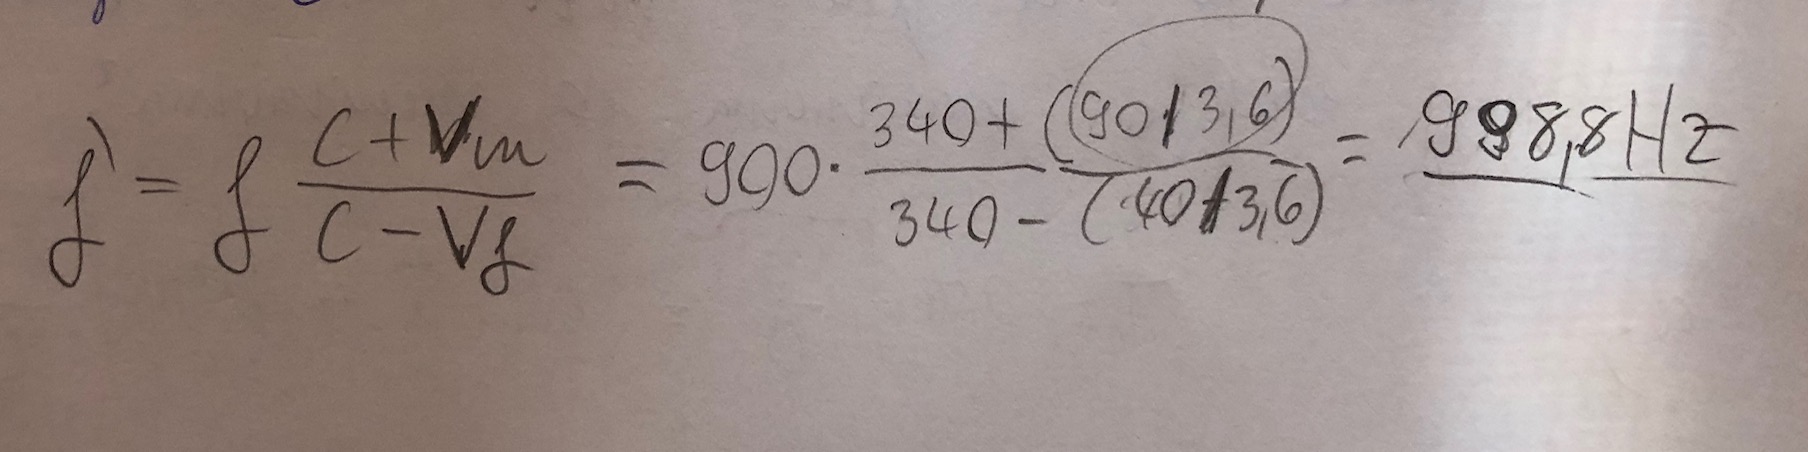 f' = f (C + Vm) / (C - Vf) = 900 · (340 + (90/3,6)) / (340 - (40/3,6)) = 998,8 Hz